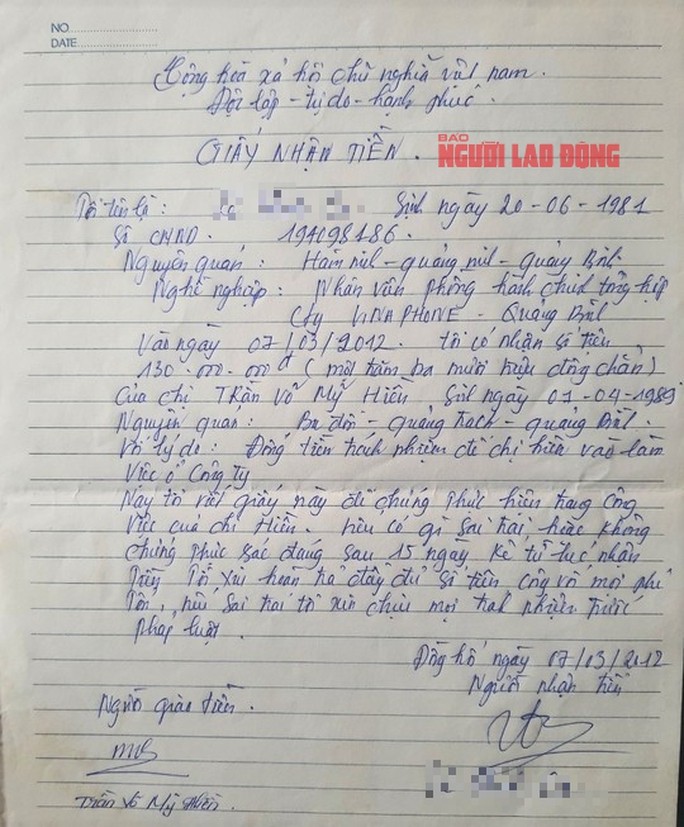 NO
DATE
Cộng hoà xã hội chủ nghĩa việt nam.
Độc lập - tự do - hạnh phúc.
GIẤY NHẬN TIỀN.
BÁO
NGƯỜI LAO ĐỘNG
Tôi tên là : Sinh ngày 20-06-1981
Số CMND. 194098186.
Nguyên quán : Hàm ninh - quảng ninh - quảng Bình.
Nghề nghiệp : Nhân viên phòng hành chính tổng hợp
Cty VINAPHONE - Quảng Bình
Vào ngày 07/03/2012. tôi có nhận số tiền
130.000.000đ (một trăm ba mươi triệu đồng chẵn)
Của chị TRẦN VÕ MỸ HIỀN Sinh ngày 01-04-1989.
Nguyên quán : Ba đồn - quảng trạch - quảng Bình.
Với lý do : Đóng tiền trách nhiệm để chị hiền vào làm
Việc ở Công ty
Nay tôi viết giấy này để chứng thực hiện trong công
Việc của chị Hiền. nếu có gì sai trái hoặc không
chứng thực xác đáng sau 15 ngày kể từ lúc nhận
Tiền Tôi xin hoàn trả đầy đủ số tiền cộng với mọi phí
Tổn, nếu sai trái tôi xin chịu mọi trách nhiệm trước
pháp luật.
Đồng hới ngày 07/03/2012
Người nhận tiền
Người giao tiền.
Trần Võ Mỹ Hiền.